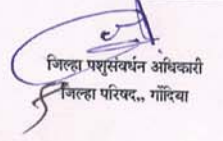 जिल्हा पशुसंवर्धन अधिकारी
जिल्हा परिषद,, गोंदिया